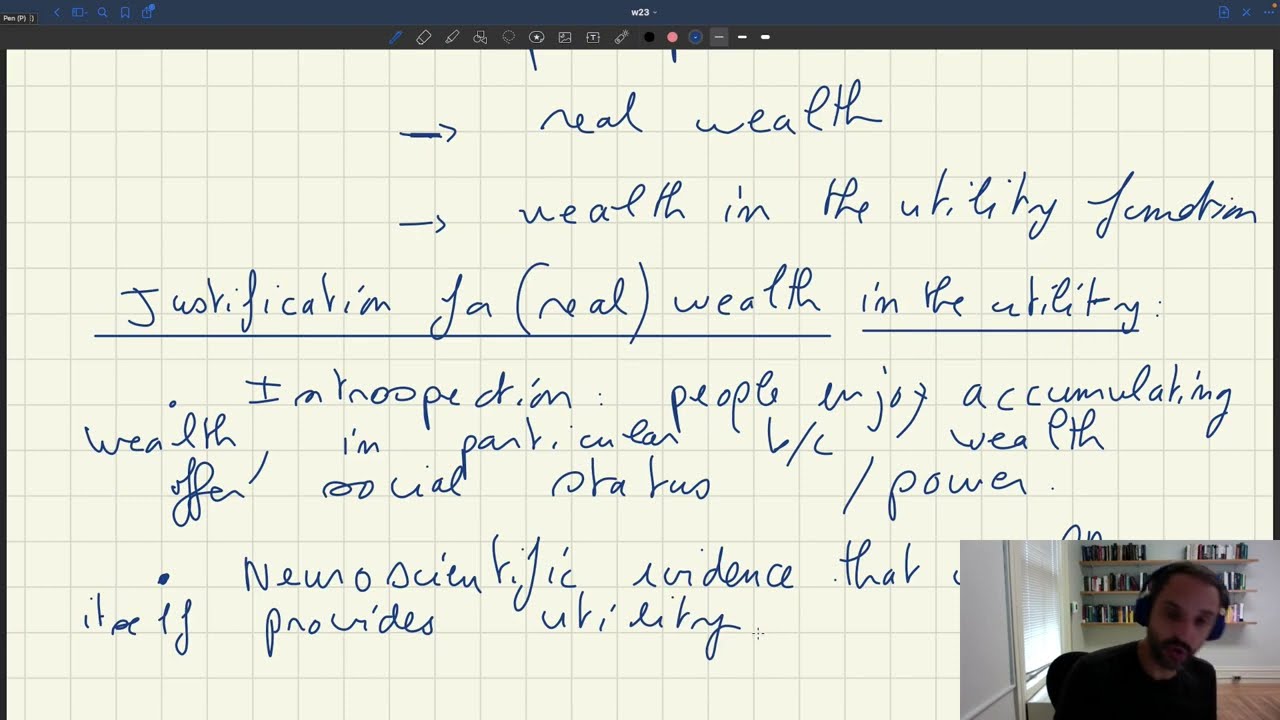 Pen (P)
w23
→ real wealth
→ wealth in the utility function
Justification for (real) wealth in the utility:
• Introspection: people enjoy accumulating
wealth, in particular b/c wealth
offer social status / power.
• Neuroscientific evidence that on
itself provides utility